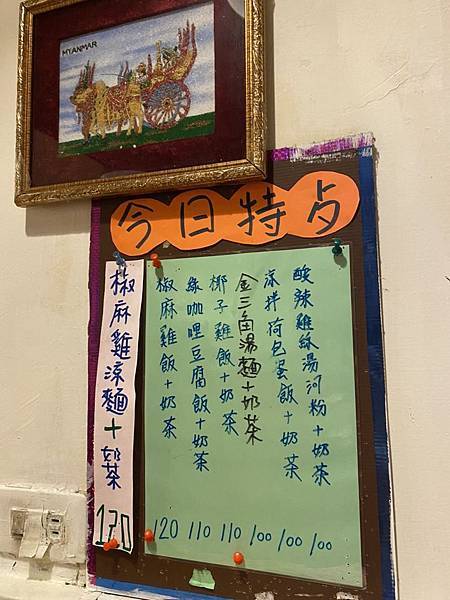 MYANMAR
今日特点
酸辣雞絲湯河粉+奶茶 100
涼拌荷包蛋飯+奶茶 100
金三角湯麵+奶茶 100
椰子雞飯+奶茶 110
綠咖哩豆腐飯+奶茶 110
椒麻雞飯+奶茶 120
椒麻雞涼麵+奶茶 120